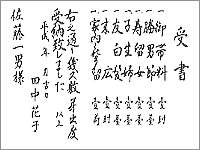 受書
一、御帯料 壱封
一、勝男節 壱台
一、寿留女 壱台
一、子生婦 壱台
一、友白髪 壱台
一、末広 壱台
一、家内喜多留 壱封
右之通り幾久敷芽出度
受納致しました 以上
平成 年 月吉日
田中花子
佐藤一男様